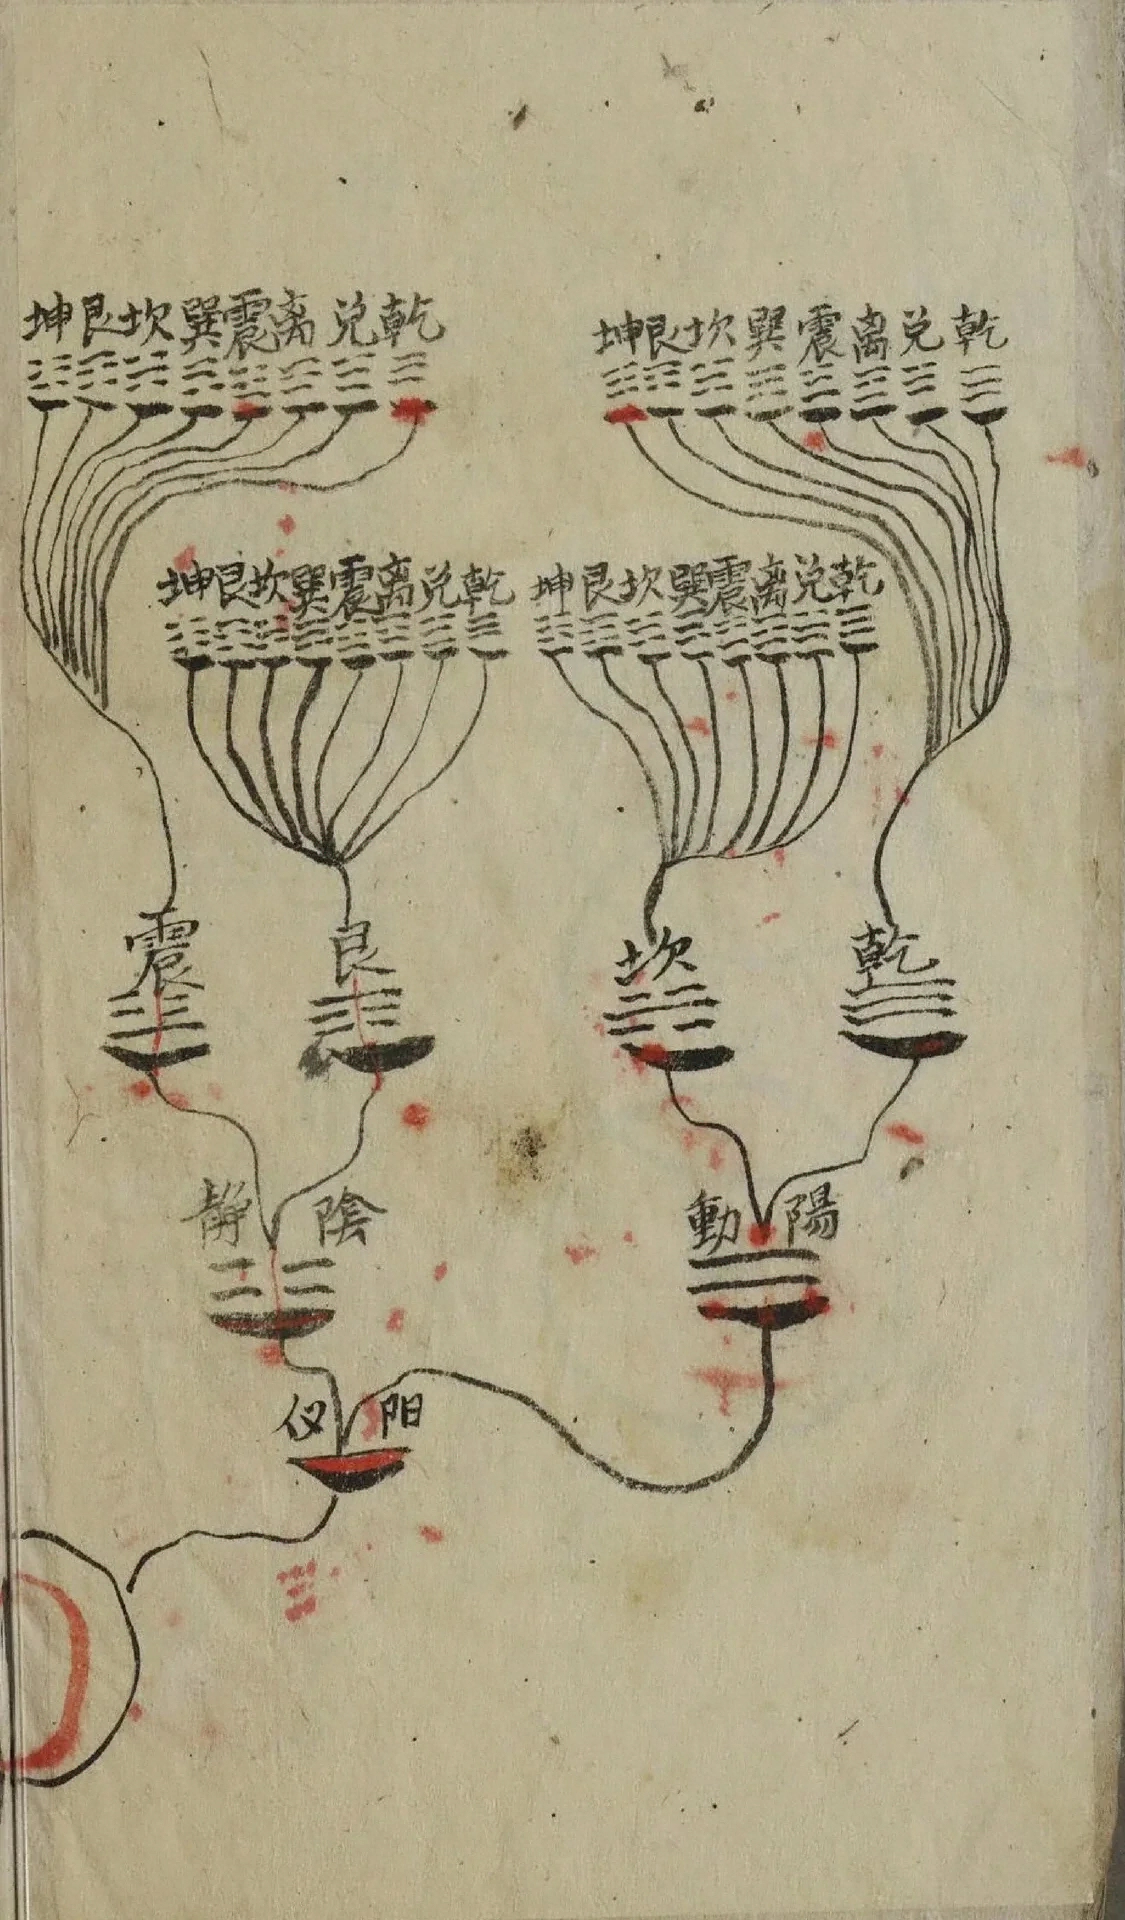 坤艮坎巽震离兑乾
坤艮坎巽震离兑乾
坤艮坎巽震离兑乾
坤艮坎巽震离兑乾
震
艮
坎
乾
静陰
動陽
仪阳